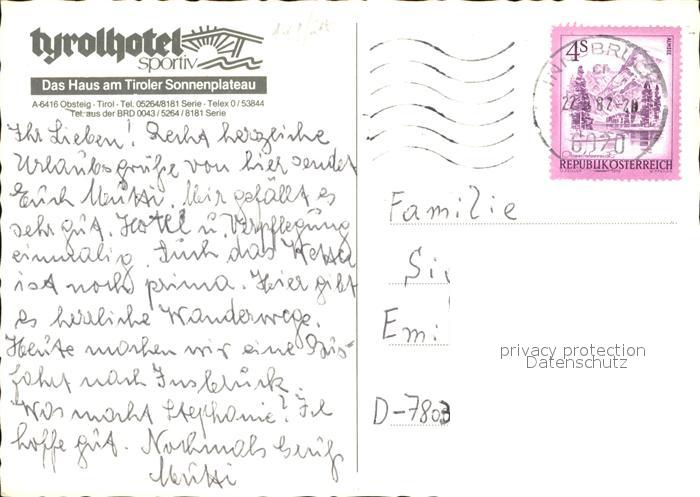 tyrolhotel
sportiv
Das Haus am Tiroler Sonnenplateau
A-6416 Obsteig - Tirol - Tel. 05264/8181 Serie - Telex 0 / 53844
Tel. aus der BRD 0043 / 5264 / 8181 Serie
Ihr Lieben! Recht herzliche
Urlaubsgrüße von hier sendet
Euch Mutti. Mir gefällt es
sehr gut. Hotel u. Verpflegung
einmalig. Auch das Wetter
ist noch prima. Hier gibt
es herrliche Wanderwege.
Heute machen wir eine Bus-
fahrt nach Innsbruck.
Was macht Stephanie? Ich
hoffe gut. Nochmals Gruß
Mutti
4S
ALMSEE
INNSBRUCK
6020
REPUBLIK ÖSTERREICH
Familie
Si
Emi
D-7803
privacy protection
Datenschutz